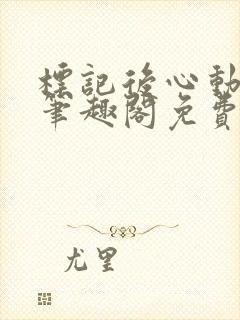 標記後心動
筆趣閣免費
尤里